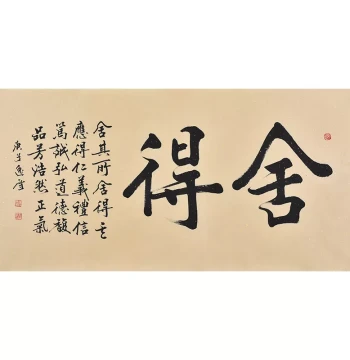 舍得
舍其所舍得其
應得仁義禮信
篤誠弘道德馥
品芳浩然正氣
庚子